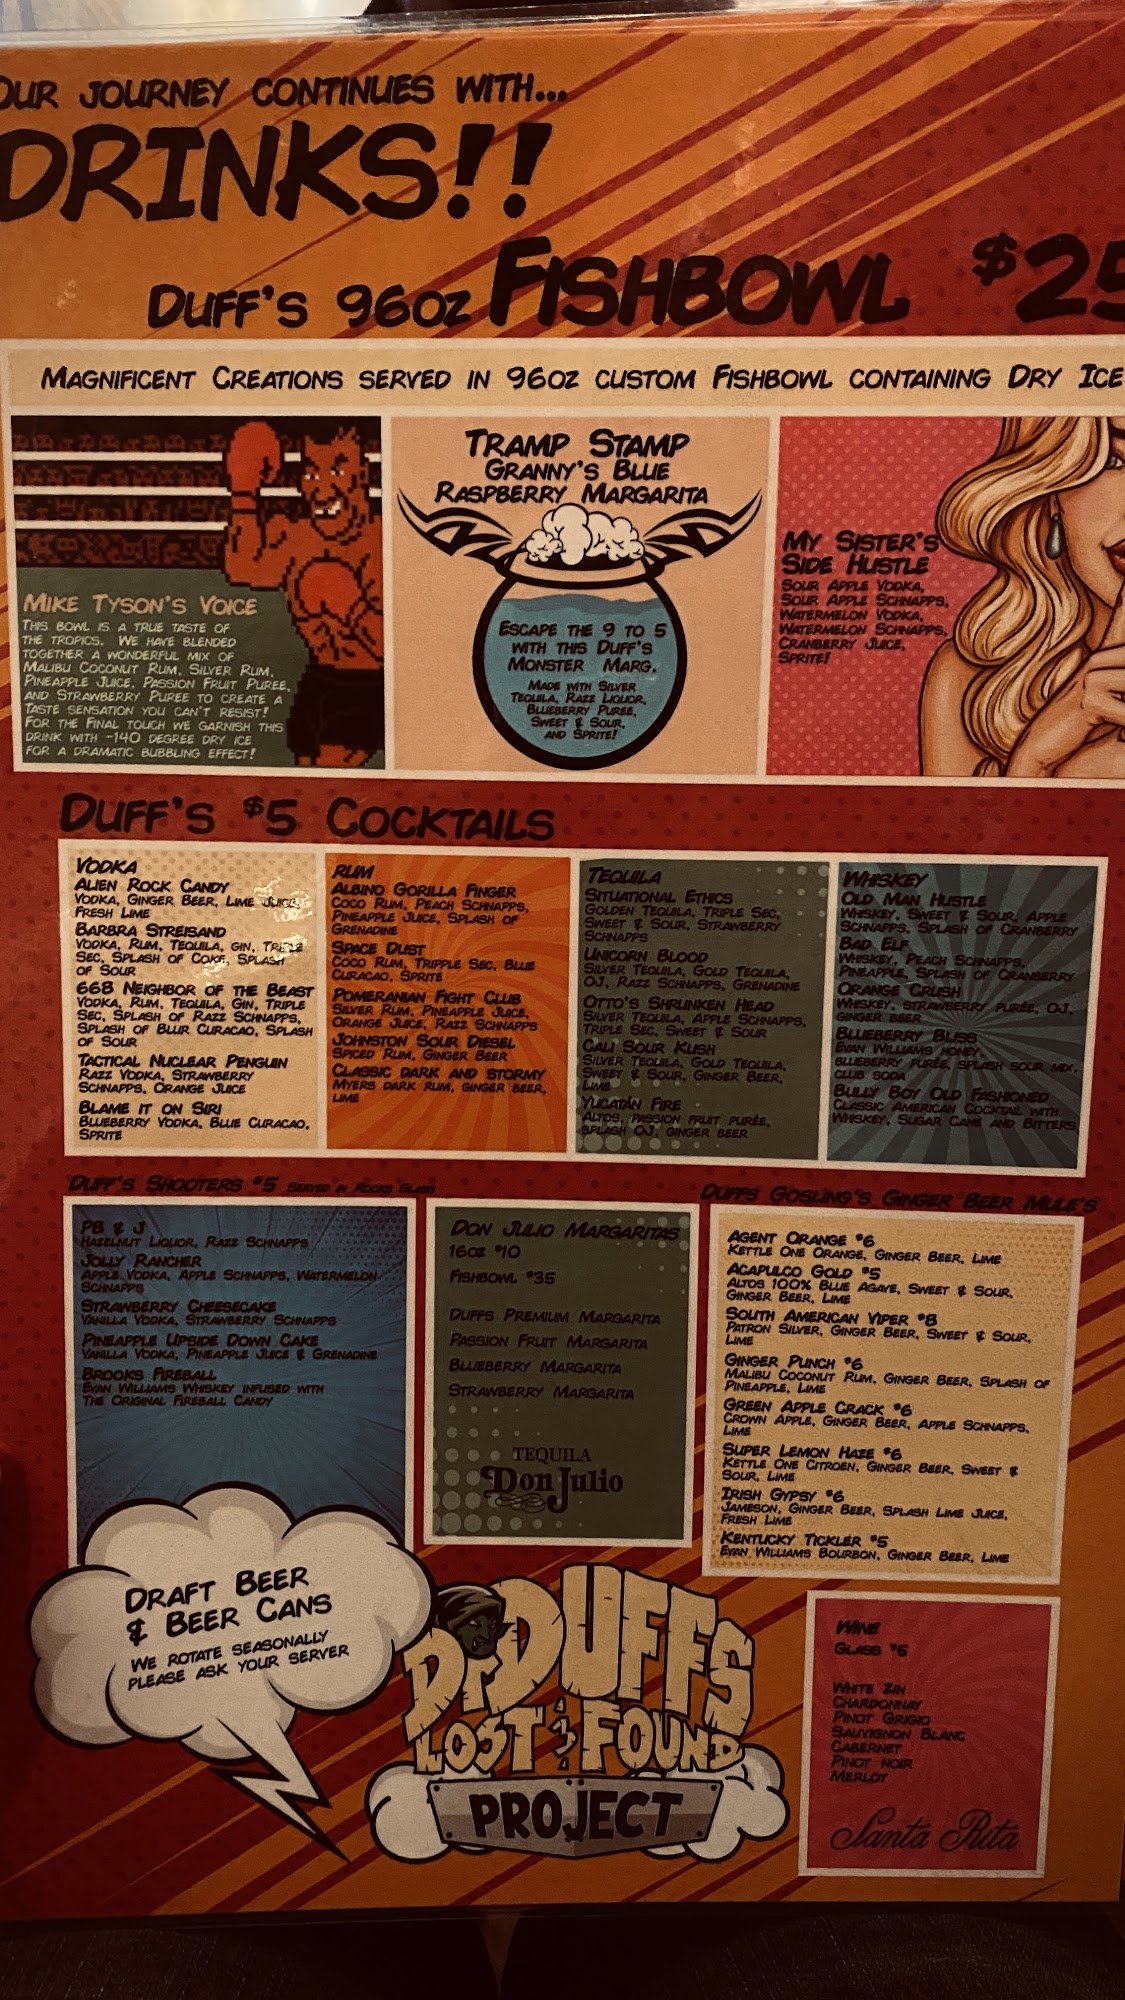 OUR JOURNEY CONTINUES WITH...
DRINKS!!
DUFF'S 96OZ FISHBOWL $25
MAGNIFICENT CREATIONS SERVED IN 96OZ CUSTOM FISHBOWL CONTAINING DRY ICE
MIKE TYSON'S VOICE
THIS BOWL IS A TRUE TASTE OF
THE TROPICS. WE HAVE BLENDED
TOGETHER A WONDERFUL MIX OF
MALIBU COCONUT RUM, SILVER RUM,
PINEAPPLE JUICE, PASSION FRUIT PUREE,
AND STRAWBERRY PUREE TO CREATE A
TASTE SENSATION YOU CAN'T RESIST!
FOR THE FINAL TOUCH WE GARNISH THIS
DRINK WITH -140 DEGREE DRY ICE
FOR A DRAMATIC BUBBLING EFFECT!
TRAMP STAMP
GRANNY'S BLUE
RASPBERRY MARGARITA
ESCAPE THE 9 TO 5
WITH THIS DUFF'S
MONSTER MARG.
MADE WITH SILVER
TEQUILA, RAZZ LIQUOR,
BLUEBERRY PUREE,
SWEET & SOUR,
AND SPRITE!
MY SISTER'S
SIDE HUSTLE
SOUR APPLE VODKA,
SOUR APPLE SCHNAPPS,
WATERMELON VODKA,
WATERMELON SCHNAPPS,
CRANBERRY JUICE,
SPRITE!
DUFF'S $5 COCKTAILS
VODKA
ALIEN ROCK CANDY
VODKA, GINGER BEER, LIME JUICE,
FRESH LIME
BARBRA STREISAND
VODKA, RUM, TEQUILA, GIN, TRIPLE
SEC, SPLASH OF COKE, SPLASH
OF SOUR
668 NEIGHBOR OF THE BEAST
VODKA, RUM, TEQUILA, GIN, TRIPLE
SEC, SPLASH OF RAZZ SCHNAPPS,
SPLASH OF BLUR CURACAO, SPLASH
OF SOUR
TACTICAL NUCLEAR PENGUIN
RAZZ VODKA, STRAWBERRY
SCHNAPPS, ORANGE JUICE
BLAME IT ON SIRI
BLUEBERRY VODKA, BLUE CURACAO,
SPRITE
RUM
ALBINO GORILLA FINGER
COCO RUM, PEACH SCHNAPPS,
PINEAPPLE JUICE, SPLASH OF
GRENADINE
SPACE DUST
COCO RUM, TRIPPLE SEC, BLUE
CURACAO, SPRITE
POMERANIAN FIGHT CLUB
SILVER RUM, PINEAPPLE JUICE,
ORANGE JUICE, RAZZ SCHNAPPS
JOHNSTON SOUR DIESEL
SPICED RUM, GINGER BEER
CLASSIC DARK AND STORMY
MYERS DARK RUM, GINGER BEER,
LIME
TEQUILA
SITUATIONAL ETHICS
GOLDEN TEQUILA, TRIPLE SEC,
SWEET & SOUR, STRAWBERRY
SCHNAPPS
UNICORN BLOOD
SILVER TEQUILA, GOLD TEQUILA,
OJ, RAZZ SCHNAPPS, GRENADINE
OTTO'S SHRUNKEN HEAD
SILVER TEQUILA, APPLE SCHNAPPS,
TRIPLE SEC, SWEET & SOUR
CALI SOUR KUSH
SILVER TEQUILA, GOLD TEQUILA,
SWEET & SOUR, GINGER BEER,
LIME
YUCATÁN FIRE
ALTOS, PASSION FRUIT PURÉE,
SPLASH OJ, GINGER BEER
WHISKEY
OLD MAN HUSTLE
WHISKEY, SWEET & SOUR, APPLE
SCHNAPPS, SPLASH OF CRANBERRY
BAD ELF
WHISKEY, PEACH SCHNAPPS,
PINEAPPLE, SPLASH OF CRANBERRY
ORANGE CRUSH
WHISKEY, STRAWBERRY PURÉE, OJ,
GINGER BEER
BLUEBERRY BLISS
EVAN WILLIAMS HONEY,
BLUEBERRY PURÉE, SPLASH SOUR MIX,
CLUB SODA
BULLY BOY OLD FASHIONED
CLASSIC AMERICAN COCKTAIL WITH
WHISKEY, SUGAR CANE AND BITTERS
DUFF'S SHOOTERS $5 SERVED IN ROCKS GLASS
PB & J
HAZELNUT LIQUOR, RAZZ SCHNAPPS
JOLLY RANCHER
APPLE VODKA, APPLE SCHNAPPS, WATERMELON
SCHNAPPS
STRAWBERRY CHEESECAKE
VANILLA VODKA, STRAWBERRY SCHNAPPS
PINEAPPLE UPSIDE DOWN CAKE
VANILLA VODKA, PINEAPPLE JUICE & GRENADINE
BROOKS FIREBALL
EVAN WILLIAMS WHISKEY INFUSED WITH
THE ORIGINAL FIREBALL CANDY
DON JULIO MARGARITAS
16OZ $10
FISHBOWL $35
DUFFS PREMIUM MARGARITA
PASSION FRUIT MARGARITA
BLUEBERRY MARGARITA
STRAWBERRY MARGARITA
TEQUILA
Don Julio
DUFFS GOSLING'S GINGER BEER MULE'S
AGENT ORANGE $6
KETTLE ONE ORANGE, GINGER BEER, LIME
ACAPULCO GOLD $5
ALTOS 100% BLUE AGAVE, SWEET & SOUR,
GINGER BEER, LIME
SOUTH AMERICAN VIPER $8
PATRON SILVER, GINGER BEER, SWEET & SOUR,
LIME
GINGER PUNCH $6
MALIBU COCONUT RUM, GINGER BEER, SPLASH OF
PINEAPPLE, LIME
GREEN APPLE CRACK $6
CROWN APPLE, GINGER BEER, APPLE SCHNAPPS,
LIME
SUPER LEMON HAZE $6
KETTLE ONE CITROEN, GINGER BEER, SWEET &
SOUR, LIME
IRISH GYPSY $6
JAMESON, GINGER BEER, SPLASH LIME JUICE,
FRESH LIME
KENTUCKY TICKLER $5
EVAN WILLIAMS BOURBON, GINGER BEER, LIME
DRAFT BEER
& BEER CANS
WE ROTATE SEASONALLY
PLEASE ASK YOUR SERVER
Dr DUFFS
LOST AND FOUND
PROJECT
WINE
GLASS $5
WHITE ZIN
CHARDONNAY
PINOT GRIGIO
SAUVIGNON BLANC
CABERNET
PINOT NOIR
MERLOT
Santa Rita